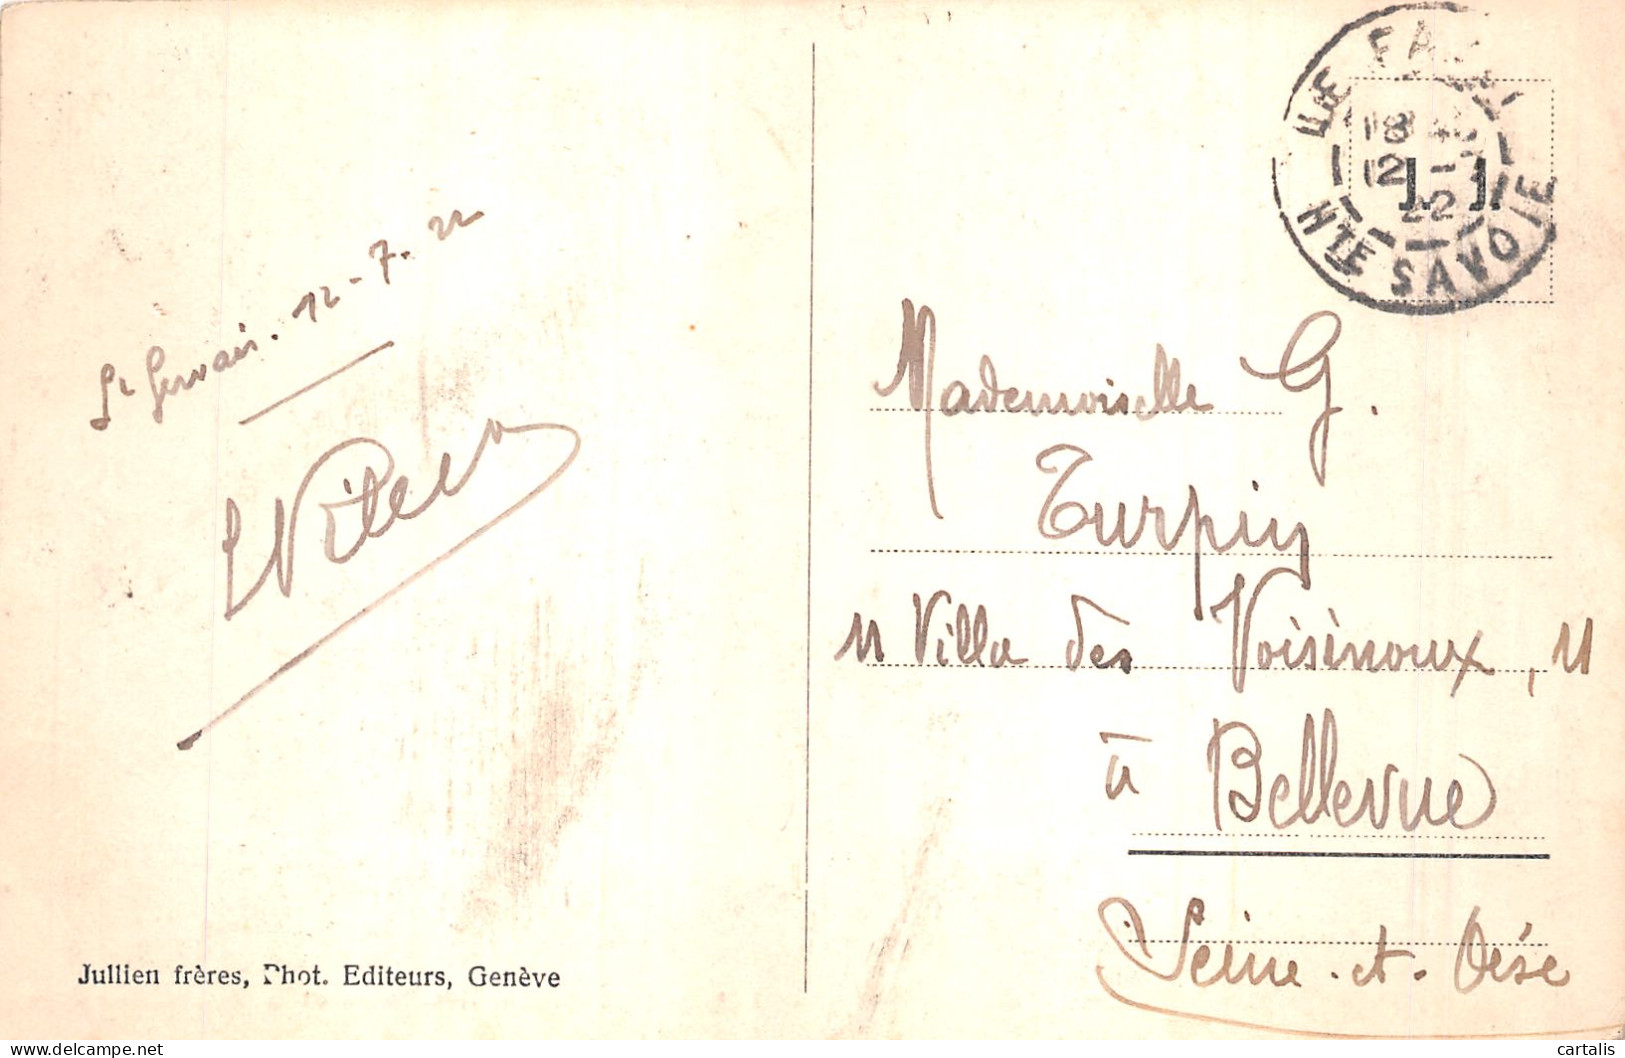 St Gervais. 12-7.22
LE FAYET
18
12 -7
22
HTE SAVOIE
J. J.
Mademoiselle G.
Turpin
" Villa des Voisinoux, "
à Bellevue
Seine-et-Oise
Jullien frères, Phot. Editeurs, Genève
cartalis